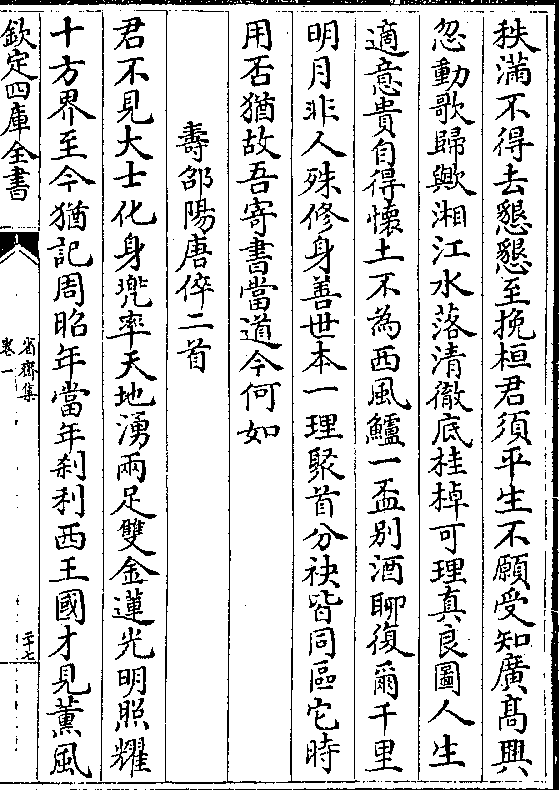 秩滿不得去懇懇至挽桓君須平生不願受知廣髙興
忽動歌歸歟湘江水落清徹底桂棹可理真良圖人生
適意貴自得懷土不為西風鱸一盃别酒聊復爾千里
明月非人殊修身善世本一理聚首分袂皆同區它時
用否猶故吾寄書當道今何如
壽邵陽唐倅二首
君不見大士化身兜率天地湧兩足雙金蓮光明照耀
十方界至今猶記周昭年當年刹利西王國才見薫風
欽定四庫全書
省齋集
卷一
三十七